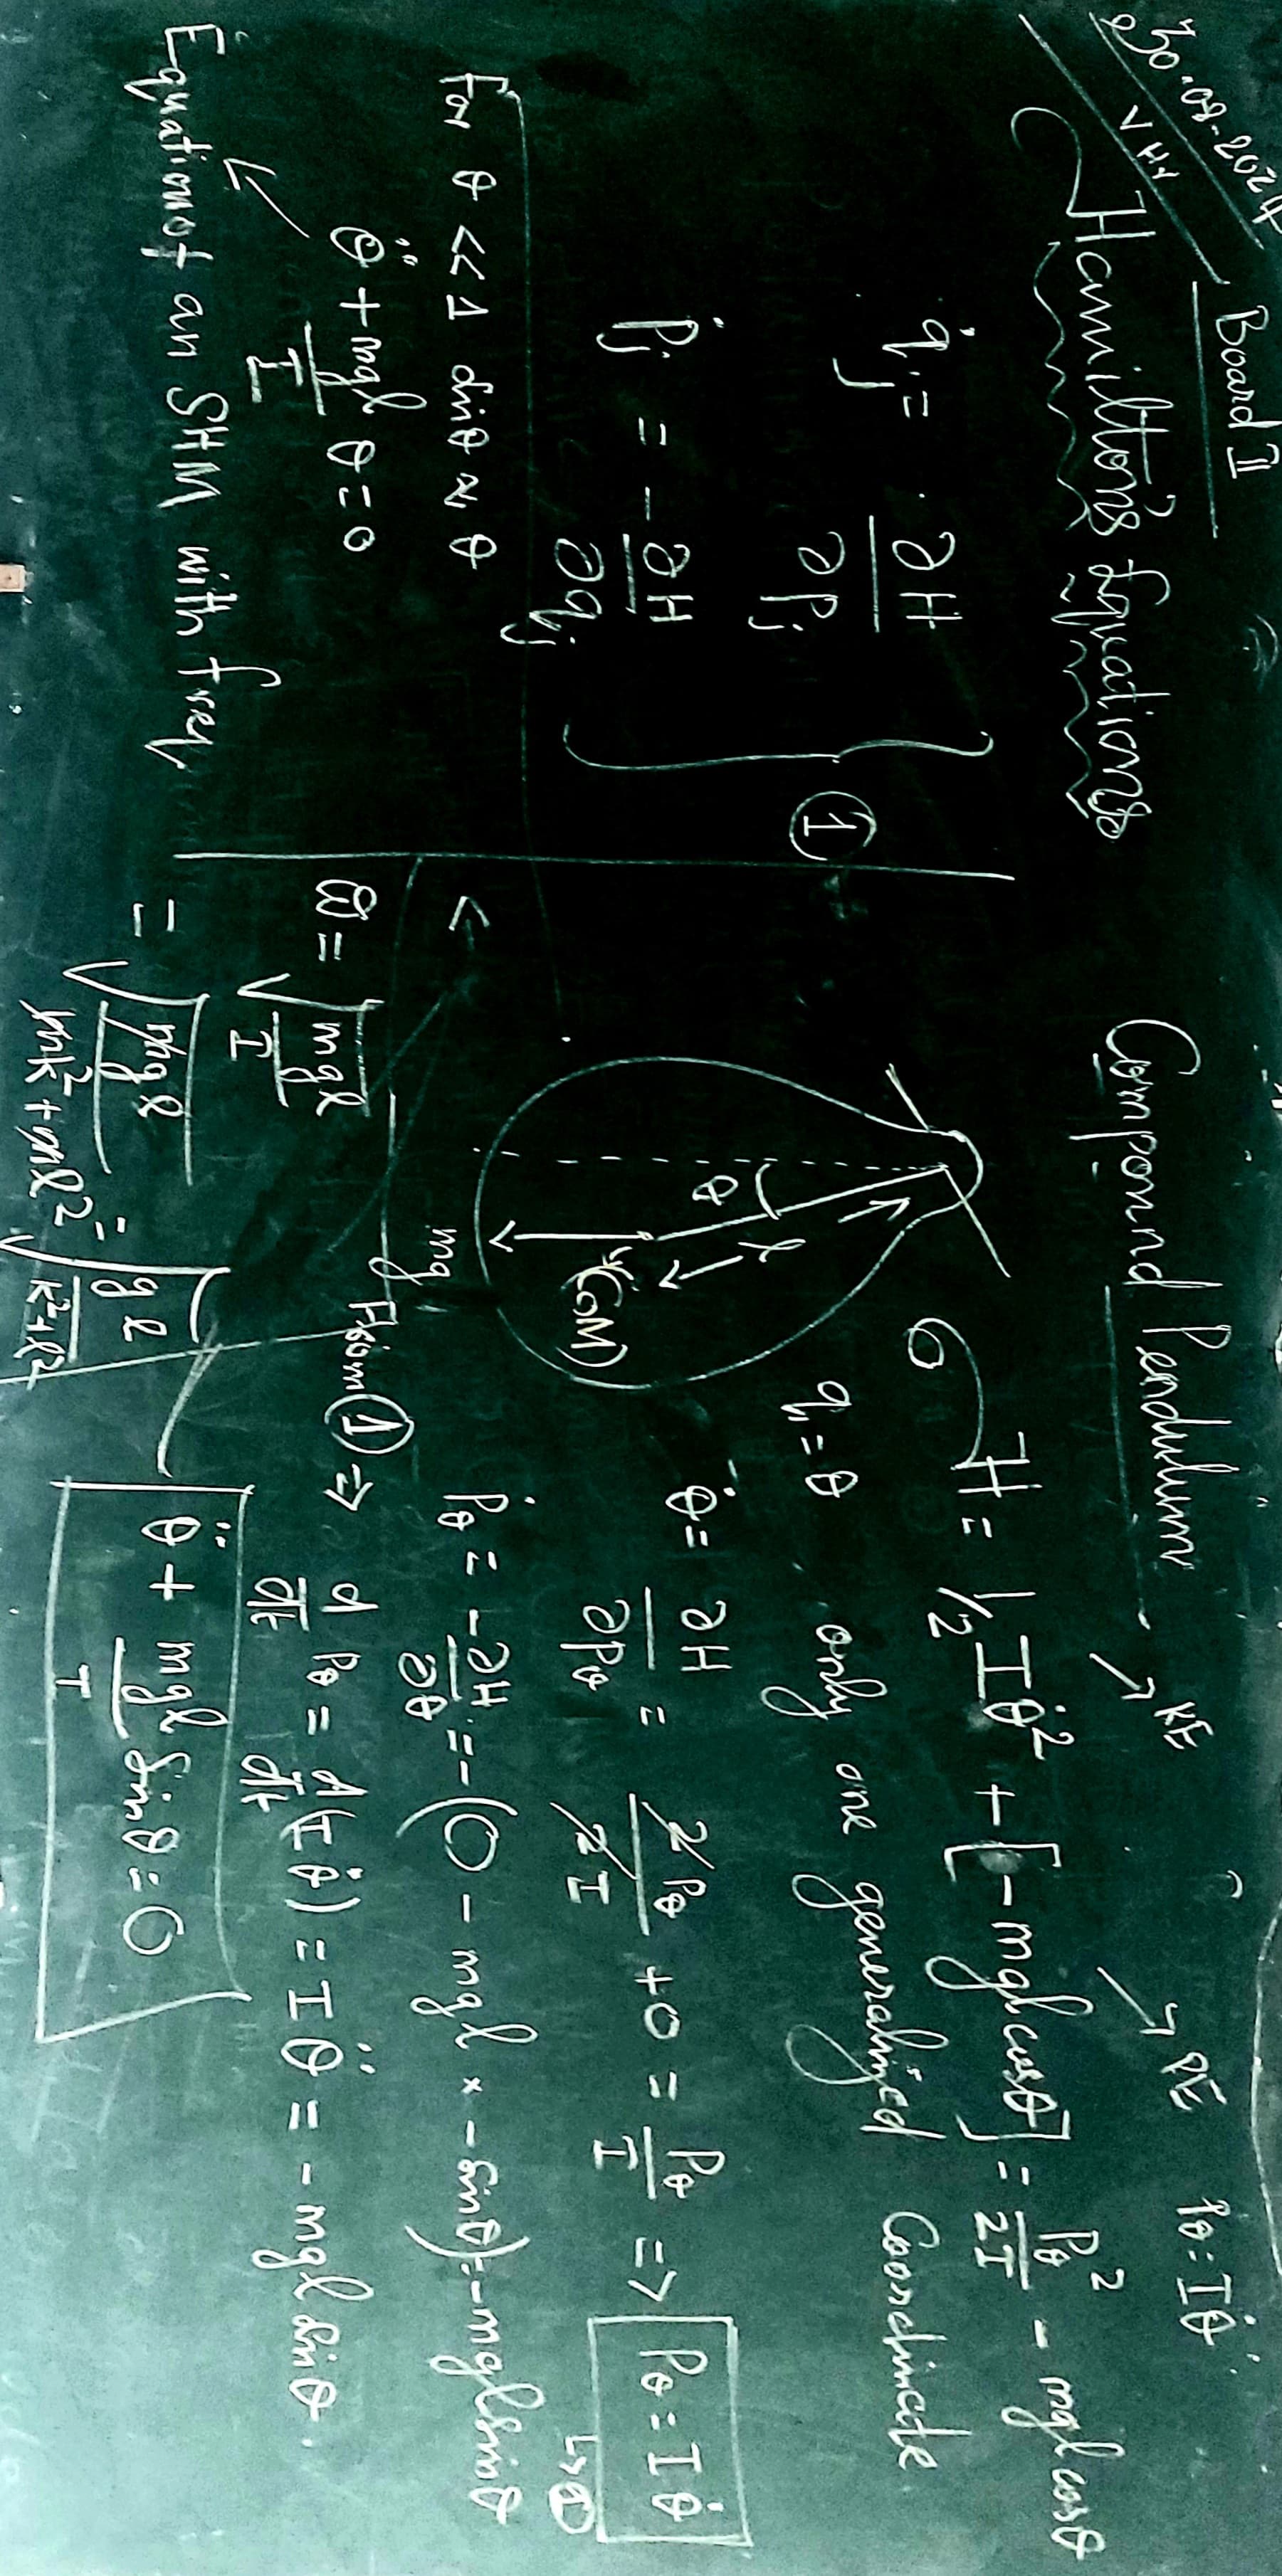 30-08-2024
VHH
Board II
Hamilton's Equations
q̇j = ∂H/∂pj
ṗj = -∂H/∂qj
} ①
For θ << 1 sinθ ≈ θ
θ̈ + mgl/I θ = 0
Equation of an SHM with freq
Compound Pendulum
θ
l
(CoM)
mg
ω = √(mgl/I)
= √(mgl/(mk²+ml²)) = √(gl/(k²+l²))
KE
PE
pθ = Iθ̇
H = 1/2 Iθ̇² + [-mgl cosθ] = pθ²/2I - mgl cosθ
q₁ = θ only one generalized Coordinate
θ̇ = ∂H/∂pθ = 2pθ/2I + 0 = pθ/I => pθ = Iθ̇
ṗθ = -∂H/∂θ = -(0 - mgl × -sinθ) = -mgl sinθ
From ① => d/dt pθ = d/dt (Iθ̇) = Iθ̈ = -mgl sinθ.
θ̈ + mgl/I Sinθ = 0